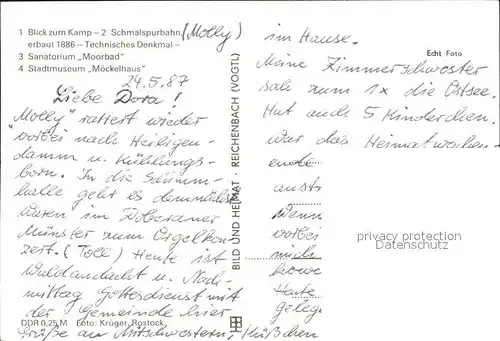 1 Blick zum Kamp – 2 Schmalspurbahn, (Molly)
erbaut 1886 – Technisches Denkmal –
3 Sanatorium „Moorbad"
4 Stadtmuseum „Möckelhaus"
24.5.87
Liebe Dora!
„Molly" rattert wieder
vorbei nach Heiligen-
damm u. Kühlungs-
born. In die Schwimm-
halle geht es demnächst
Waren im Doberaner
Münster zum Orgelkon
zert. (Toll) Heute ist
Waldandacht u. Nach-
mittag Gottesdienst mit
der Gemeinde hier
Grüße an Mitschwestern, Küßchen
DDR 0,25 M Foto: Krüger, Rostock
BILD UND HEIMAT · REICHENBACH (VOGTL)
Echt Foto
im Hause.
Meine Zimmerschwester
sah zum 1x die Ostsee.
Hut auch 5 Kinderchen.
War das Heimatwochen-
ende
austr
Wenn
vorbei
mich
Heute
geleg
privacy protection
Datenschutz